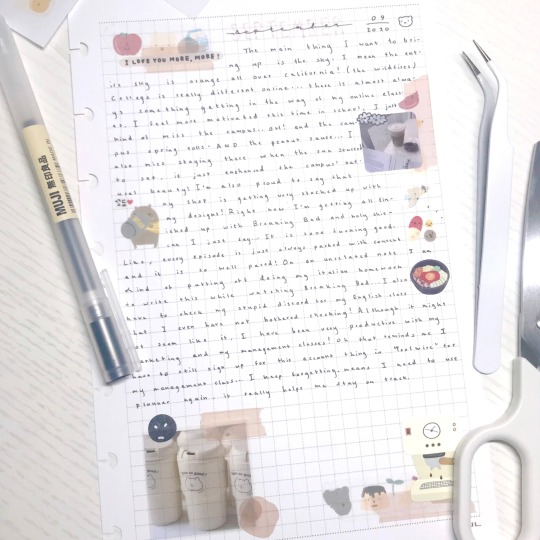 september
09
2020
I LOVE YOU MORE, MORE!
The main thing I want to bri-
ng up is the sky. I mean the ent-
ire sky is orange all over california! (the wildfires)
College is really different online... there is almost alwa-
ys something getting in the way of my online class-
es. I feel more motivated this time in school. I just
kind of miss the campus... oh! and the cam-
pus spring rolls. AND the peanut sauce... I
also miss staying there when the sun
to set, it just enhanced the campus' nat-
ural beauty! I'm also proud to say that
my shop is getting very stacked up with
my designs! Right now I'm getting all
up with Breaking Bad and holy shit-
can I just say... It is so good.
Like, every episode is just always packed with content
and it is so well paced! On an unrelated note, I am
kind of putting off doing my italian homework
to write this while watching Breaking Bad. I also
have to check my stupid discord for my English class
that I even have not bothered checking! Although it might
not seem like it, I have been very productive with my
marketing and my management classes! Oh that reminds me I
have to still sign up for this account thing in "Toolwire" for
my management class. I keep forgetting, means I need to use
planner again. it really helps me stay on track.
MUJI 無印良品